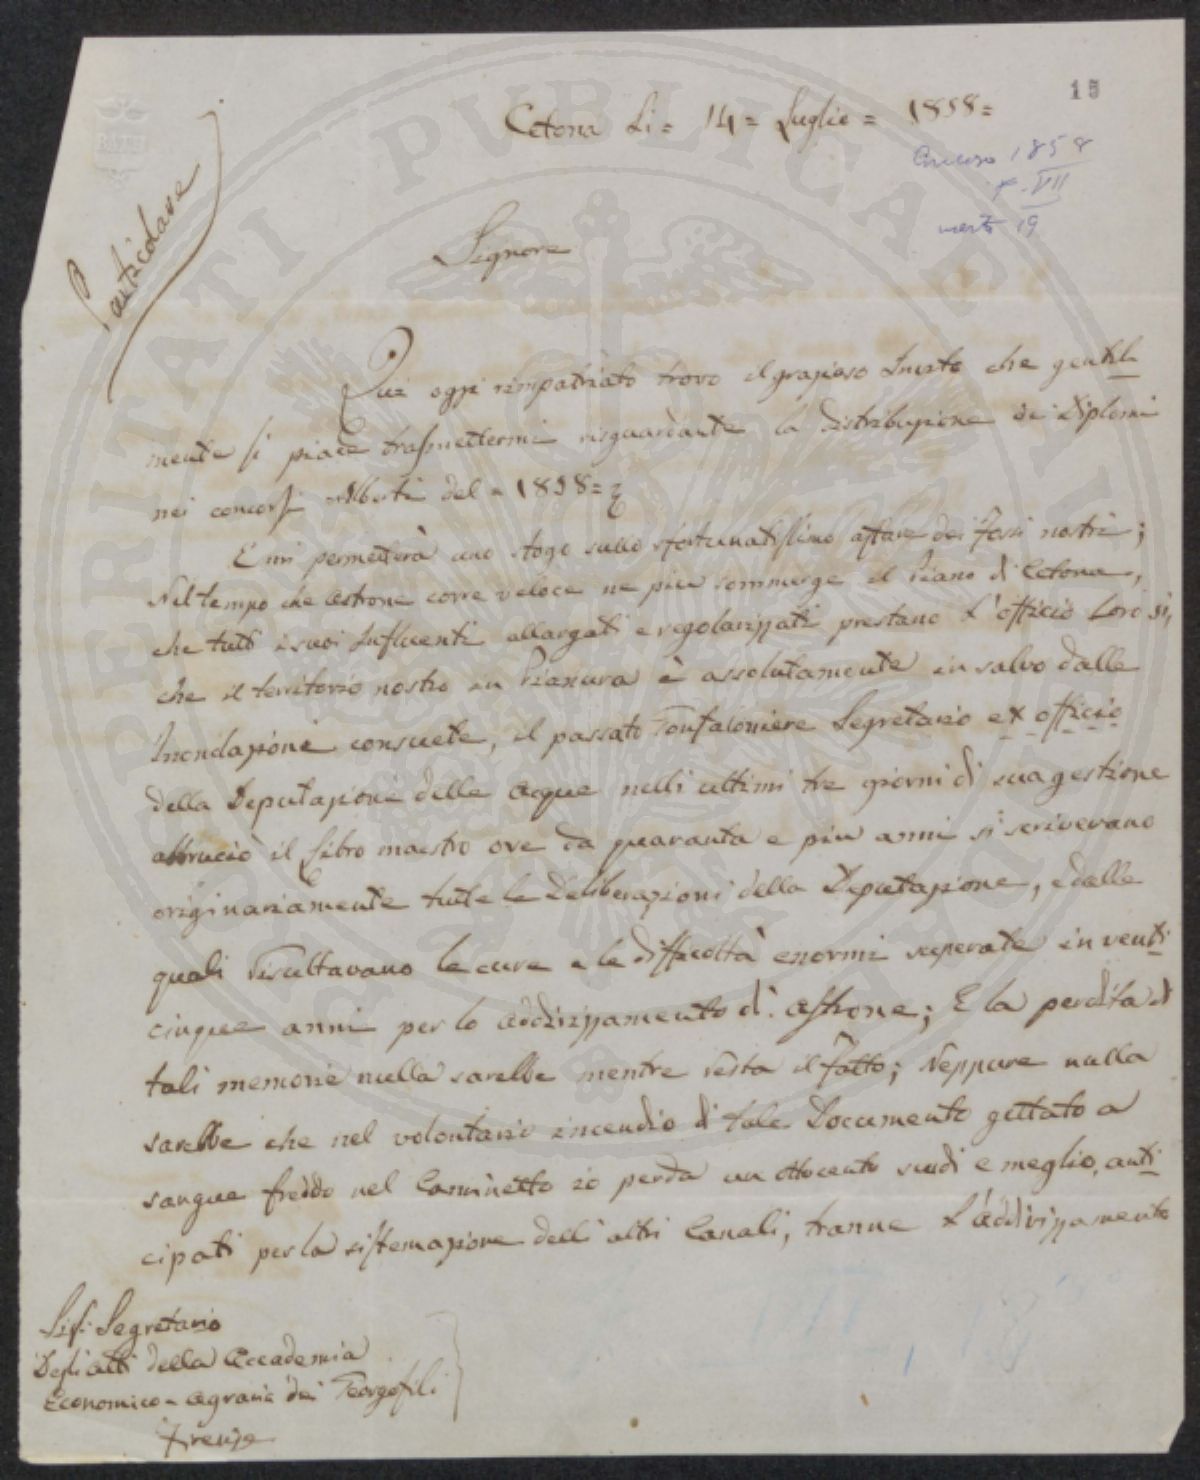 15
Cetona Li = 14 = Luglio = 1858 =
Concorso 1858
VII
19
BATH
Particolare
Signore
Quì oggi rimpatriato trovo il grazioso Invito che gentil-
mente si piace trasmettermi risguardante la Distribuzione dei Diplomi
nei concorsi Alberti del = 1858 =
E mi permetterà uno sfogo sullo sfortunatissimo affare dei Fossi nostri;
Nel tempo che Astrone corre veloce ne piu sommerge il Piano di Cetona,
che tutti i suoi Influenti allargati e regolarizzati prestano L'officio Loro sì,
che il territorio nostro in Pianura è assolutamente in salvo dalle
Inondazione consuete, il passato Gonfaloniere Segretario ex officio
della Deputazione delle acque nelli ultimi tre giorni di sua gestione
abbruciò il Libro maestro ove da quaranta e piu anni si scrivevano
originariamente tutte le Deliberazioni della Deputazione, e dalle
quali risultavano le cure e le difficoltà enormi superate in venti-
cinque anni per lo addirizzamento di Astrone; E la perdita di
tali memorie nulla sarebbe mentre resta il Fatto; Neppure nulla
sarebbe che nel volontario incendio di tale Documento gettato a
sangue freddo nel Camminetto io perda un ottocento scudi e meglio, anti-
cipati per la sistemazione delli altri Canali, tranne L'addirizzamento
Sig: Segretario
Degli atti della Accademia
Economico-Agraria dei Georgofili
Firenze
PROSPERITATI PUBLICAE AUGENDAE